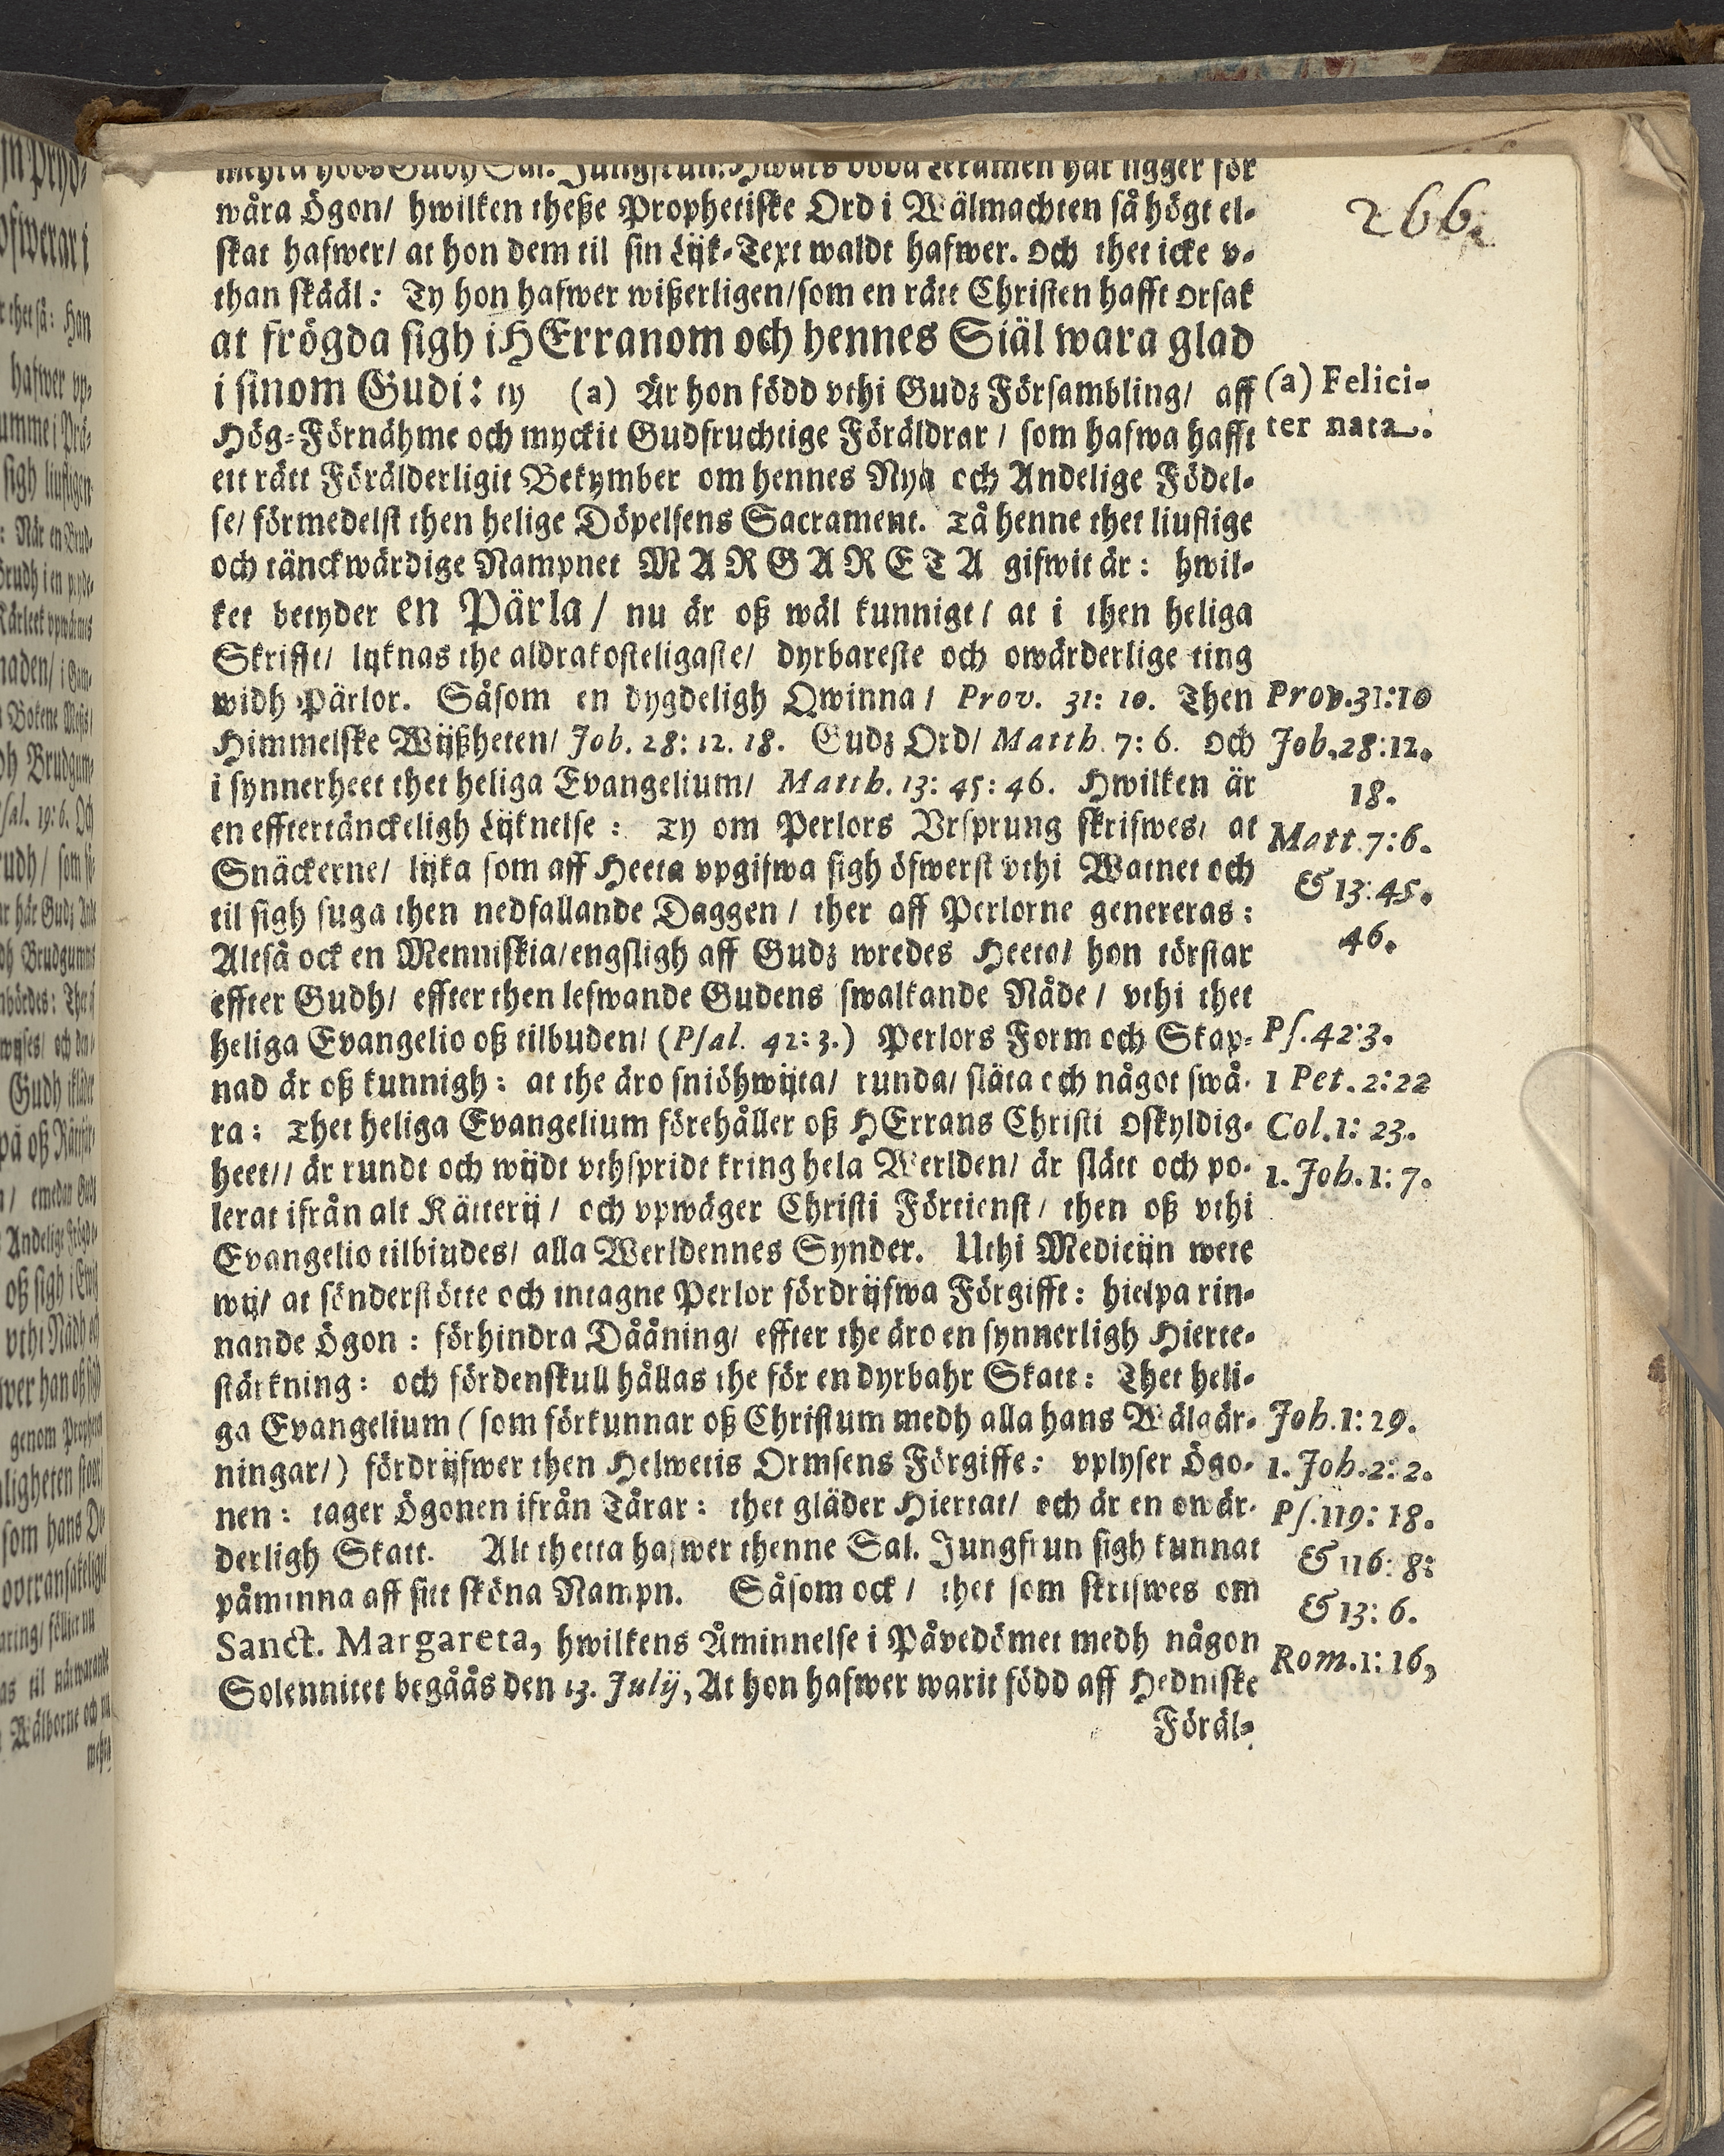 266.
Jungfrun: Hwars döda Lekamen här ligger för
wåra Ögon/ hwilken theße Prophetiske Ord i Wälmachten så högt el-
skat hafwer/ at hon dem til sin Lijk-Text waldt hafwer. Och thet icke v-
than skääl: Ty hon hafwer wißerligen/ som en rätt Christen hafft orsak
at frögda sigh i HErranom och hennes Siäl wara glad
i sinom Gudi: ty (a) Är hon född vthi Gudz Försambling/ aff
(a) Felici-
ter nata.
Hög-Förnähme och myckit Gudfruchtige Föräldrar / som hafwa hafft
ett rätt Förälderligit Bekymber om hennes Nya och Andelige Födel-
se/ förmedelst then helige Döpelsens Sacrament. Tå henne thet liuflige
och tänckwärdige Nampnet MARGARETA gifwit är: hwil-
ket betyder en Pärla / nu är oß wäl kunnigt / at i then heliga
Skrifft/ lijknas the aldrakosteligaste/ dyrbareste och owärderlige ting
widh Pärlor. Såsom en dygdeligh Qwinna / Prov. 31: 10. Then
Prov.31:10
Himmelske Wijßheten/ Job. 28: 12. 18. Gudz Ord/ Matth. 7: 6. Och
Job.28:12.
18.
i synnerheet thet heliga Evangelium/ Matth. 13: 45: 46. Hwilken är
en efftertänckeligh Lijknelse : Ty om Perlors Vrsprung skrifwes, at
Matt.7:6.
Snäckerne/ lijka som aff Heeta vpgifwa sigh öfwerst vthi Watnet och
& 13:45.
til sigh suga then nedfallande Daggen / ther aff Perlorne genereras:
46.
Altså ock en Menniskia/ engsligh aff Gudz wredes Heeta/ hon törstar
effter Gudh/ effter then lefwande Gudens swalkande Nåde / vthi thet
heliga Evangelio oß tilbuden/ (Psal. 42: 3.) Perlors Form och Skap-
Ps.42:3.
nad är oß kunnigh: at the äro sniöhwijta/ runda/ släta och något swå-
1 Pet.2:22
ra: Thet heliga Evangelium förehåller oß HErrans Christi Oskyldig-
Col.1: 23.
heet// är rundt och wijdt vthspridt kring hela Werlden/ är slätt och po-
1. Joh.1: 7.
lerat ifrån alt Kätterij / och vpwäger Christi Förtienst / then oß vthi
Evangelio tilbiudes/ alla Werldennes Synder. Uthi Medicijn wete
wij/ at sönderstötte och intagne Perlor fördrijfwa Förgifft: hielpa rin-
nande Ögon : förhindra Dååning/ effter the äro en synnerligh Hierte-
stärkning: och fördenskull hållas the för en dyrbahr Skatt: Thet heli-
ga Evangelium ( som förkunnar oß Christum medh alla hans Wälgär-
Joh.1: 29.
ningar/) fördrijfwer then Helwetis Ormsens Förgifft: vplyser Ögo-
1. Joh.2: 2.
nen: tager Ögonen ifrån Tårar: thet gläder Hiertat/ och är en owär-
Ps.119: 18.
derligh Skatt. Alt thetta hafwer thenne Sal. Jungfrun sigh kunnat
& 116: 8:
påminna aff sitt sköna Nampn. Såsom ock / thet som skrifwes om
& 13: 6.
Sanct. Margareta, hwilkens Åminnelse i Påvedömet medh någon
Rom.1: 16,
Solennitet begåås den 13. Julij, At hon hafwer warit född aff Hedniske
Föräl-